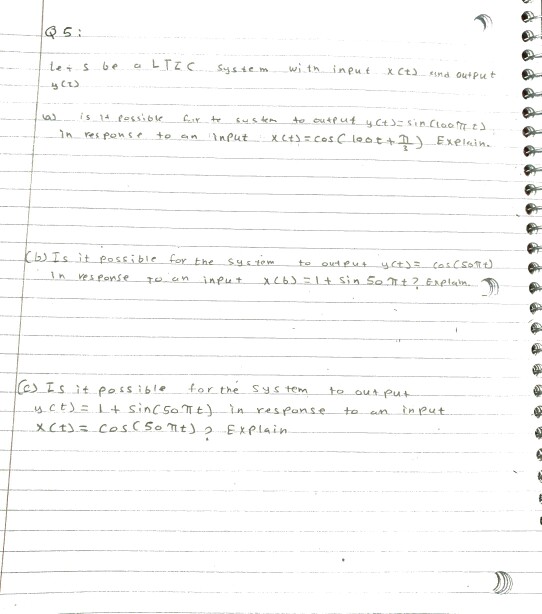 Q5:
Let s be a LTIC system with input x(t) and output
y(t)
(a) is it possible for te system to output y(t)=sin(100πt)
In response to an input x(t)=cos(100t+π/3) Explain.
(b) Is it possible for the system to output y(t)= cos(50πt)
In response to an input x(b)=1+ sin 50πt? Explain.
(c) Is it possible for the system to output
y(t)=1+ sin(50πt) in response to an input
x(t)= cos(50πt)? Explain